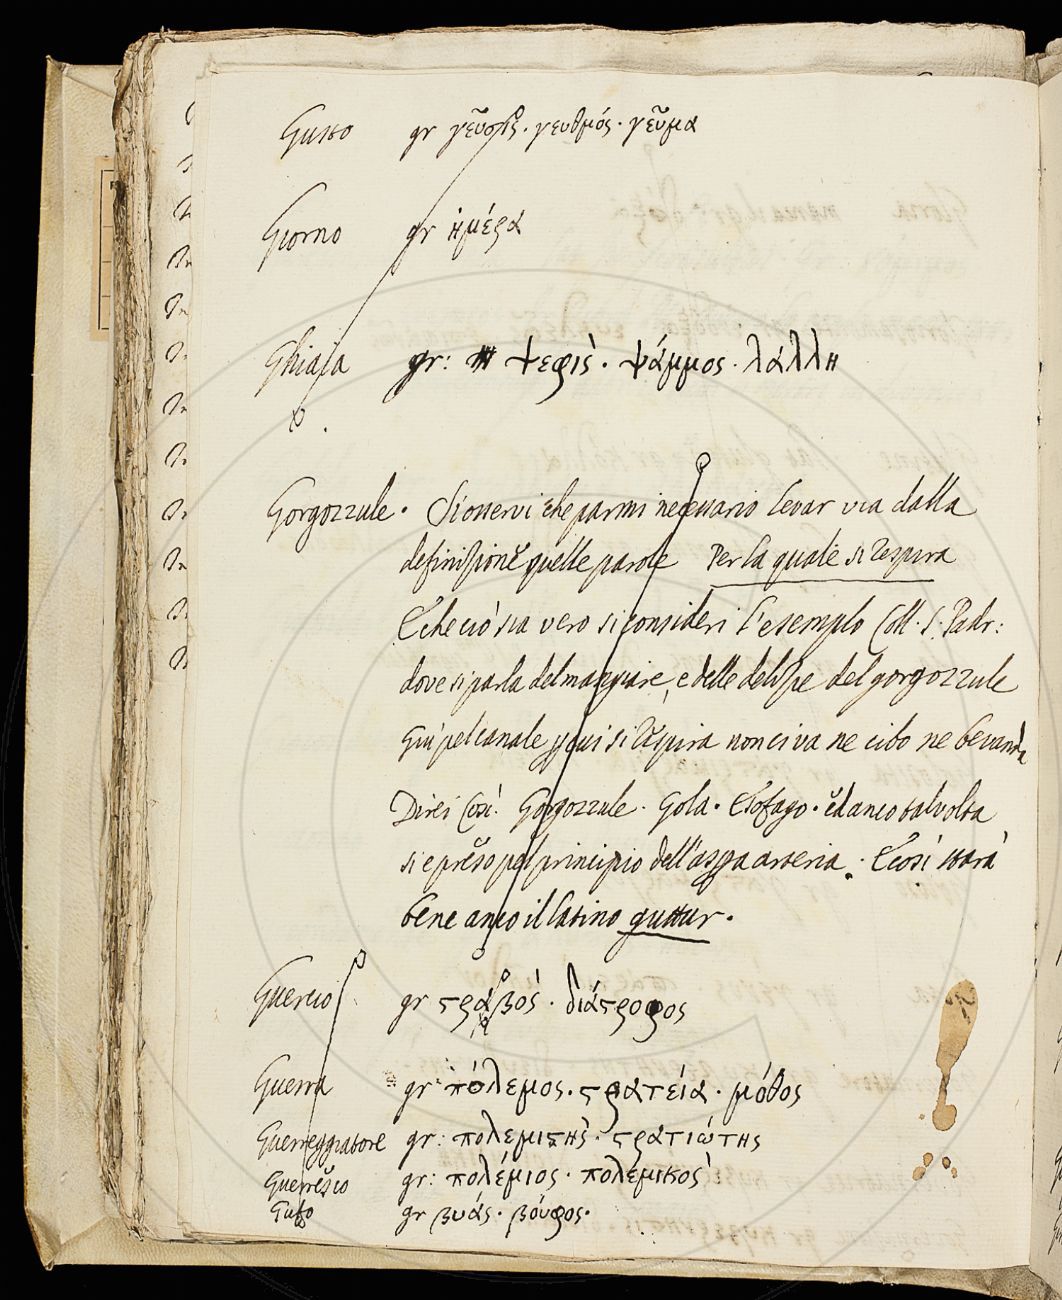 Gusto gr γεῦσις · γευθμός · γεῦμα
Giorno gr ἡμέρα
Ghiaja gr: ψεφις · ψάμμος · λάλλη
Gorgozzule · Si osservi che parmi necessario levar via dalla
definizione quelle parole Per la quale si respira
E che ciò sia vero si consideri l'esempio Coll. S. Padr:
dove si parla del mangiare, e delle delizie del gorgozzule
Qui pel canale si respira non ci va ne cibo ne bevanda
Direi Così. Gorgozzule. Gola. Esofago. ed anco talvolta
si è preso pel principio dell'aspra arteria. E così starà
bene anco il latino guttur.
Guercio gr στραβός · διάστροφος
Guerra gr: πόλεμος. στρατεία · μόθος
Guerreggiatore gr: πολεμιστής · στρατιώτης
gr: πολέμιος · πολεμικός
Gufo gr βυάς · βούφος.